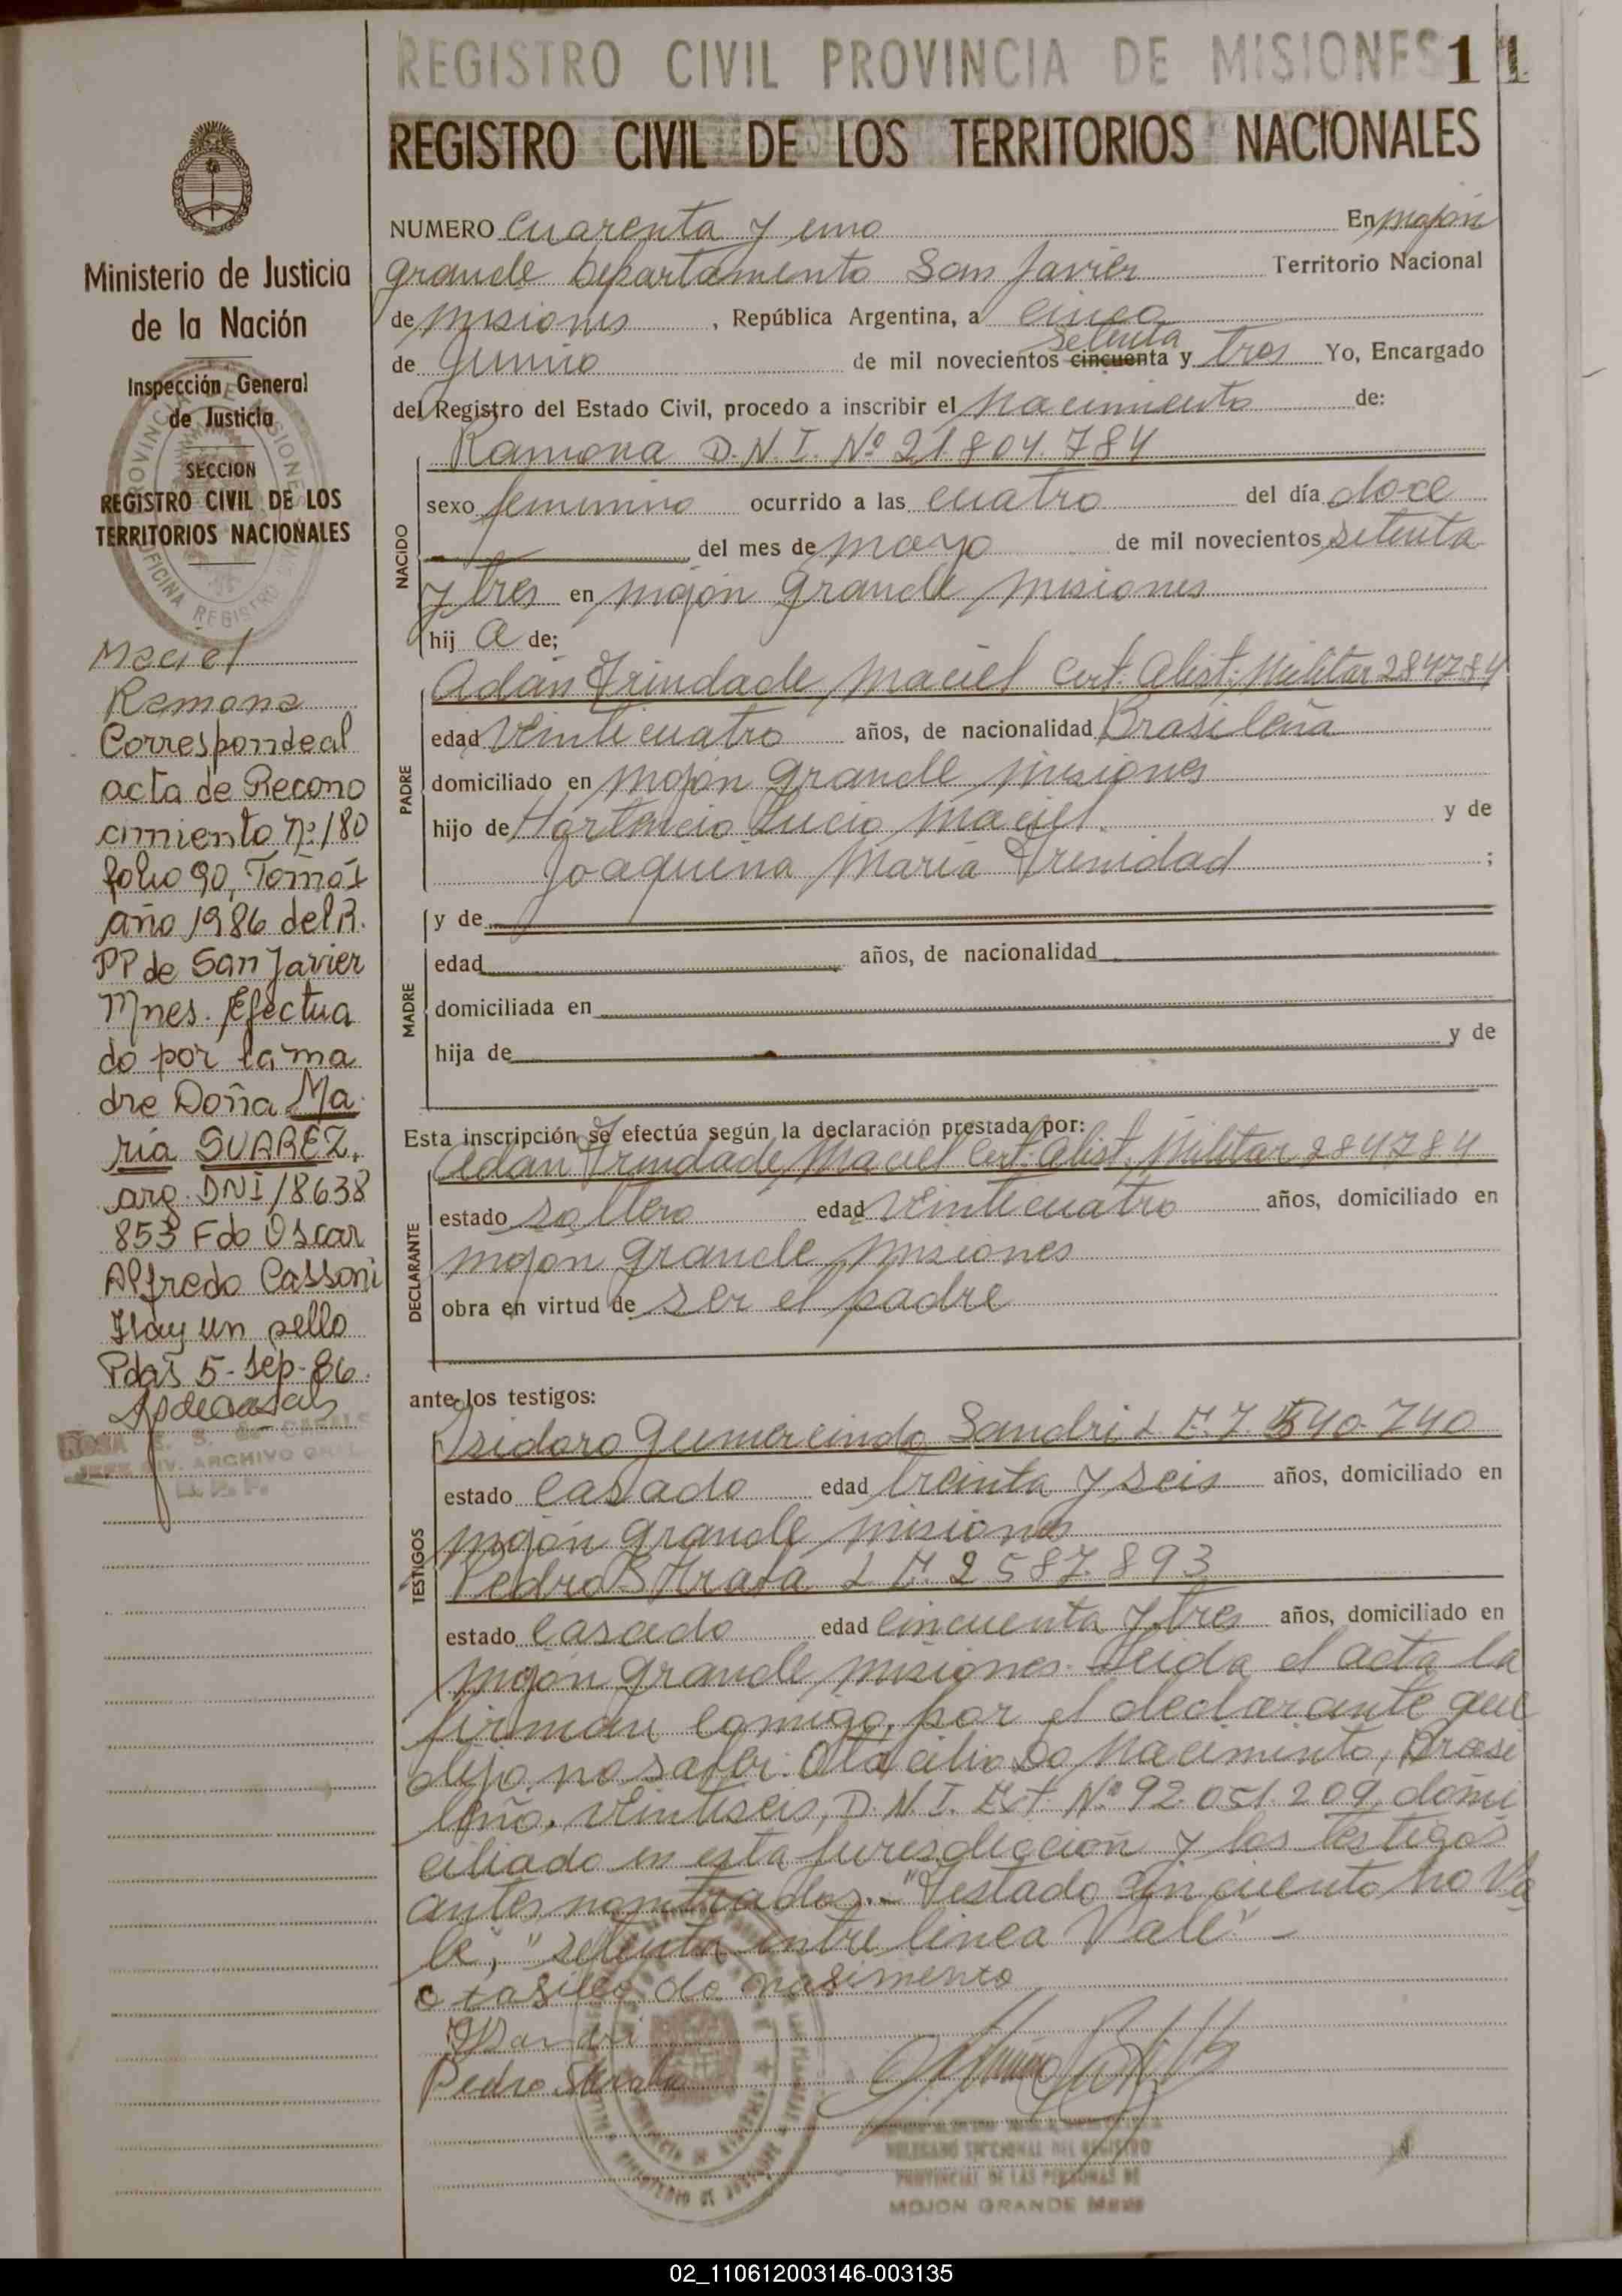 REGISTRO CIVIL PROVINCIA DE MISIONES 1 1
REGISTRO CIVIL DE LOS TERRITORIOS NACIONALES
Ministerio de Justicia
de la Nación
Inspección General
de Justicia
SECCION
REGISTRO CIVIL DE LOS
TERRITORIOS NACIONALES
PROVINCIA DE MISIONES
OFICINA REGISTRO
Maciel
Ramona
Corresponde al
acta de Recono
cimiento Nº 180
folio 90, Tomo I
año 1986 del R.
PP de San Javier
Mnes. Efectua
do por la ma
dre Doña Ma
ría SUAREZ,
arg. DNI 18638
853 Fdo Oscar
Alfredo Cassoni
Hay un sello
Pdas 5-Sep-86.
ROSA CASALS
JEFE DIV. ARCHIVO GRAL
NUMERO cuarenta y uno En mojón
grande Departamento San Javier Territorio Nacional
de misiones, República Argentina, a cinco
setenta
de Junio de mil novecientos cincuenta y tres Yo, Encargado
del Registro del Estado Civil, procedo a inscribir el nacimiento de:
NACIDO
Ramona D.N.I. Nº 21.804.784
sexo femenino ocurrido a las cuatro del día doce
del mes de mayo de mil novecientos setenta
y tres en mojón grande misiones
hij a de;
PADRE
Adán Trindade Maciel Cert. Alist. Militar 284784
edad veinticuatro años, de nacionalidad Brasileña
domiciliado en mojón grande misiones
hijo de Hortencio Lucio Maciel y de
Joaquina María Trinidad ;
MADRE
y de
edad años, de nacionalidad
domiciliada en
hija de y de
Esta inscripción se efectúa según la declaración prestada por:
DECLARANTE
Adán Trindade Maciel Cert. Alist. Militar 284784
estado soltero edad veinticuatro años, domiciliado en
mojón grande misiones
obra en virtud de ser el padre
ante los testigos:
TESTIGOS
Isidoro Gumercindo Sandri L.E. 7.540.740
estado casado edad treinta y seis años, domiciliado en
mojón grande misiones
Pedro Strata L.E. 2587.893
estado casado edad cincuenta y tres años, domiciliado en
mojón grande misiones. Leida el acta la
firman comigo, por el declarante que
dijo no saber: Otacilio Do Nacimento, Brasi
leño, veintiseis, D.N.I. Ext. Nº 92.051.209, domi
ciliado en esta jurisdiccion y los testigos
antes nombrados.- "Testado cincuenta no Va
le", "setenta entre linea Vale" -
otasileo do nasimento
Sandri
Pedro Strata
DELEGADO SECCIONAL DEL REGISTRO
PROVINCIAL DE LAS PERSONAS DE
MOJON GRANDE Mnes
02_110612003146-003135